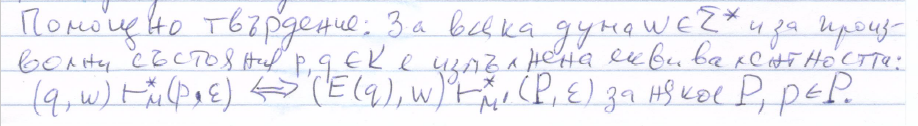 Помощно твърдение: За всяка дума w ∈ Σ* и за произ-
волни състояния p, q ∈ K е изпълнена еквивалентността:
(q, w) ⊢*_M (p, ε) ⟺ (E(q), w) ⊢*_M' (P, ε) за някое P, p ∈ P.